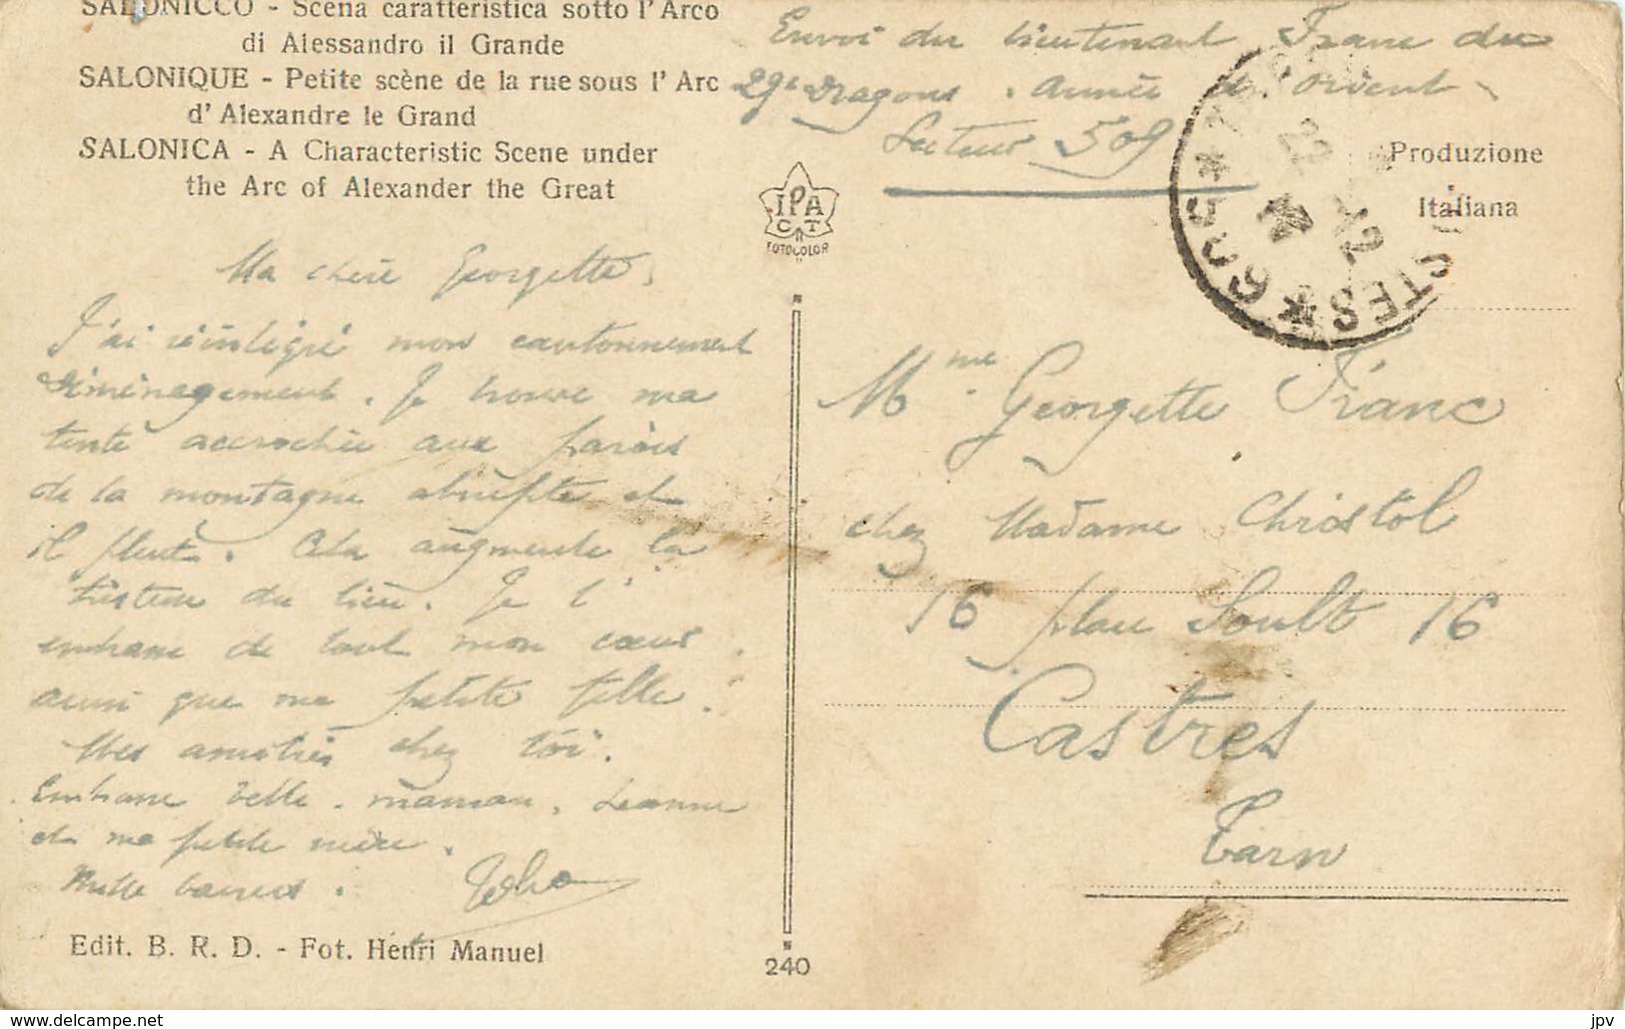 SALONICCO - Scena caratteristica sotto l'Arco
di Alessandro il Grande
SALONIQUE - Petite scène de la rue sous l'Arc
d'Alexandre le Grand
SALONICA - A Characteristic Scene under
the Arc of Alexander the Great
Envoi du lieutenant Franc du
29e Dragons. Armée d'Orient
Secteur 509
Produzione
Italiana
IPA
CT
FOTOCOLOR
POSTES * 509 *
Ma chère Georgette,
J'ai réintégré mon cantonnement
déménagement. Je trouve ma
tente accrochée aux parois
de la montagne abrupte et
il pleut. Cela augmente la
tristesse du lieu. Je t'
embrasse de tout mon cœur
ainsi que ma petite fille.
Mes amitiés chez toi.
Embrasse maman, Jeanne
et ma petite mère.
Mille baisers.
Mme Georgette Franc
chez Madame Christol
16 place Soult 16
Castres
Tarn
Edit. B. R. D. - Fot. Henri Manuel
240
delcampe.net
jpv